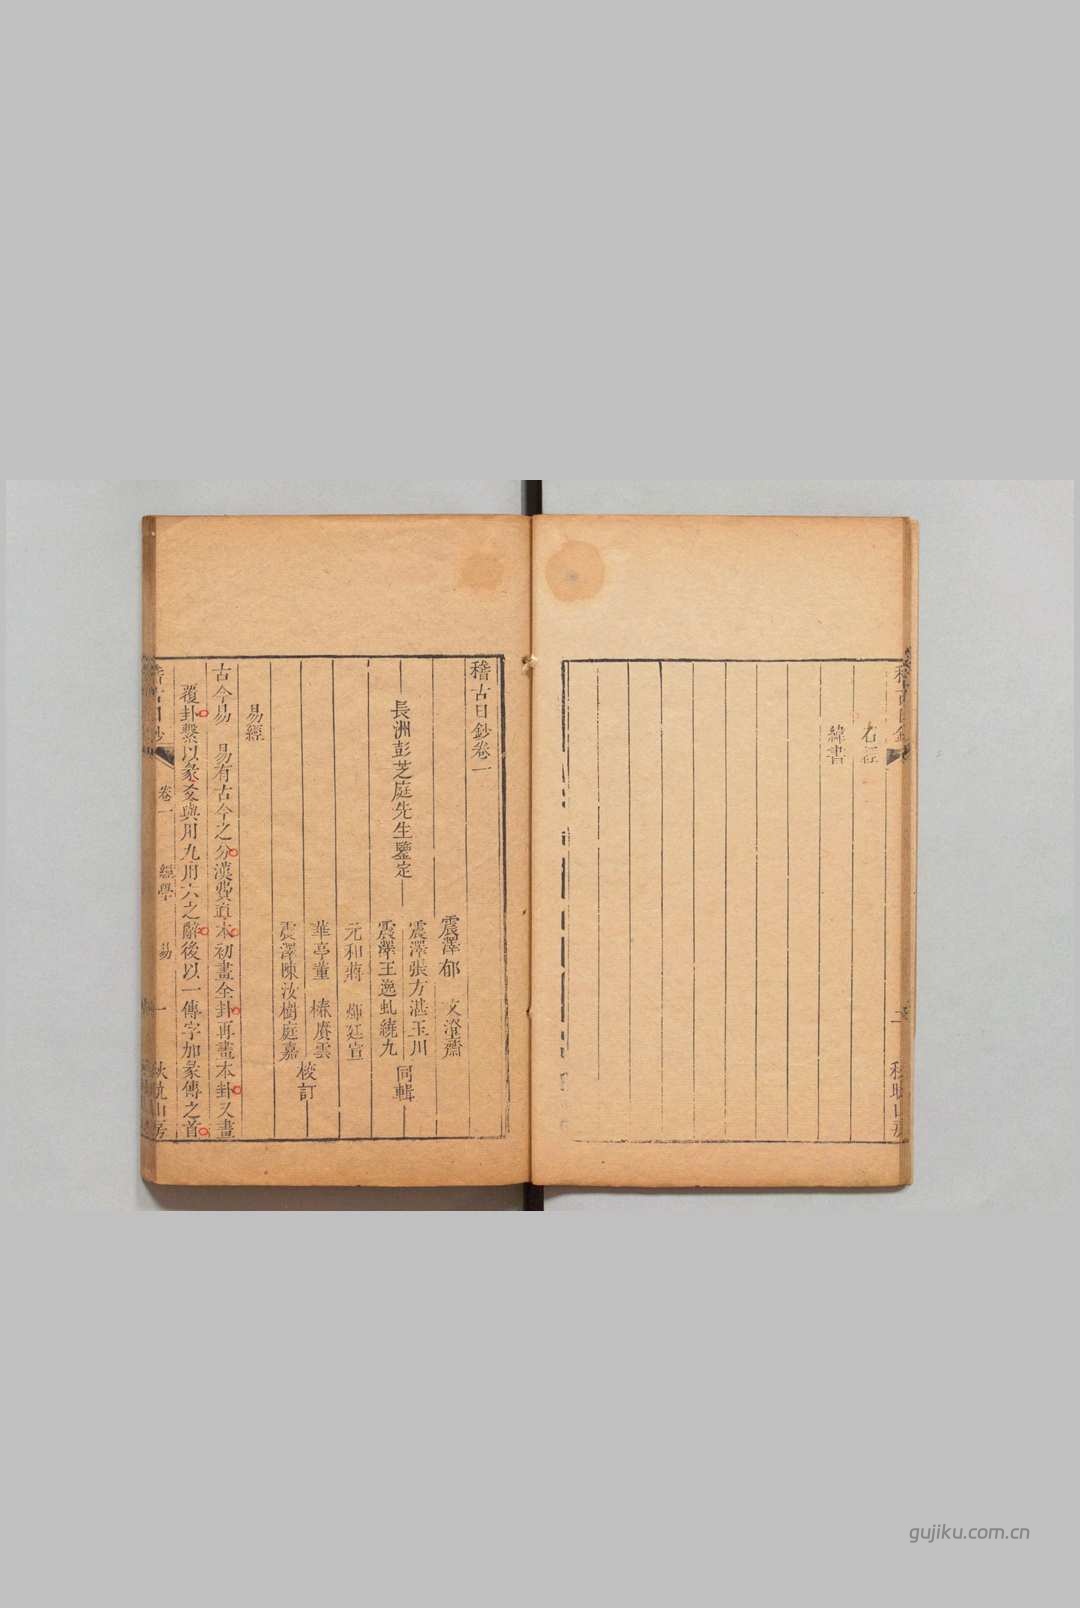 石經
緯書
稽古日鈔卷一
長洲彭芝庭先生鑒定
震澤郁 文澄齋
震澤張方湛玉川
震澤王逸虬繞九
同輯
元和蔣 廷宣
華亭董 椿賡雲
震澤陳汝樹庭嘉
校訂
易經
古今易 易有古今之分漢費直本初畫全卦再畫本卦又畫
覆卦繫以彖爻與用九用六之辭後以一傳字加彖傳之首
稽古日鈔
卷一
經學
易
一
秋曉山房
gujiku.com.cn